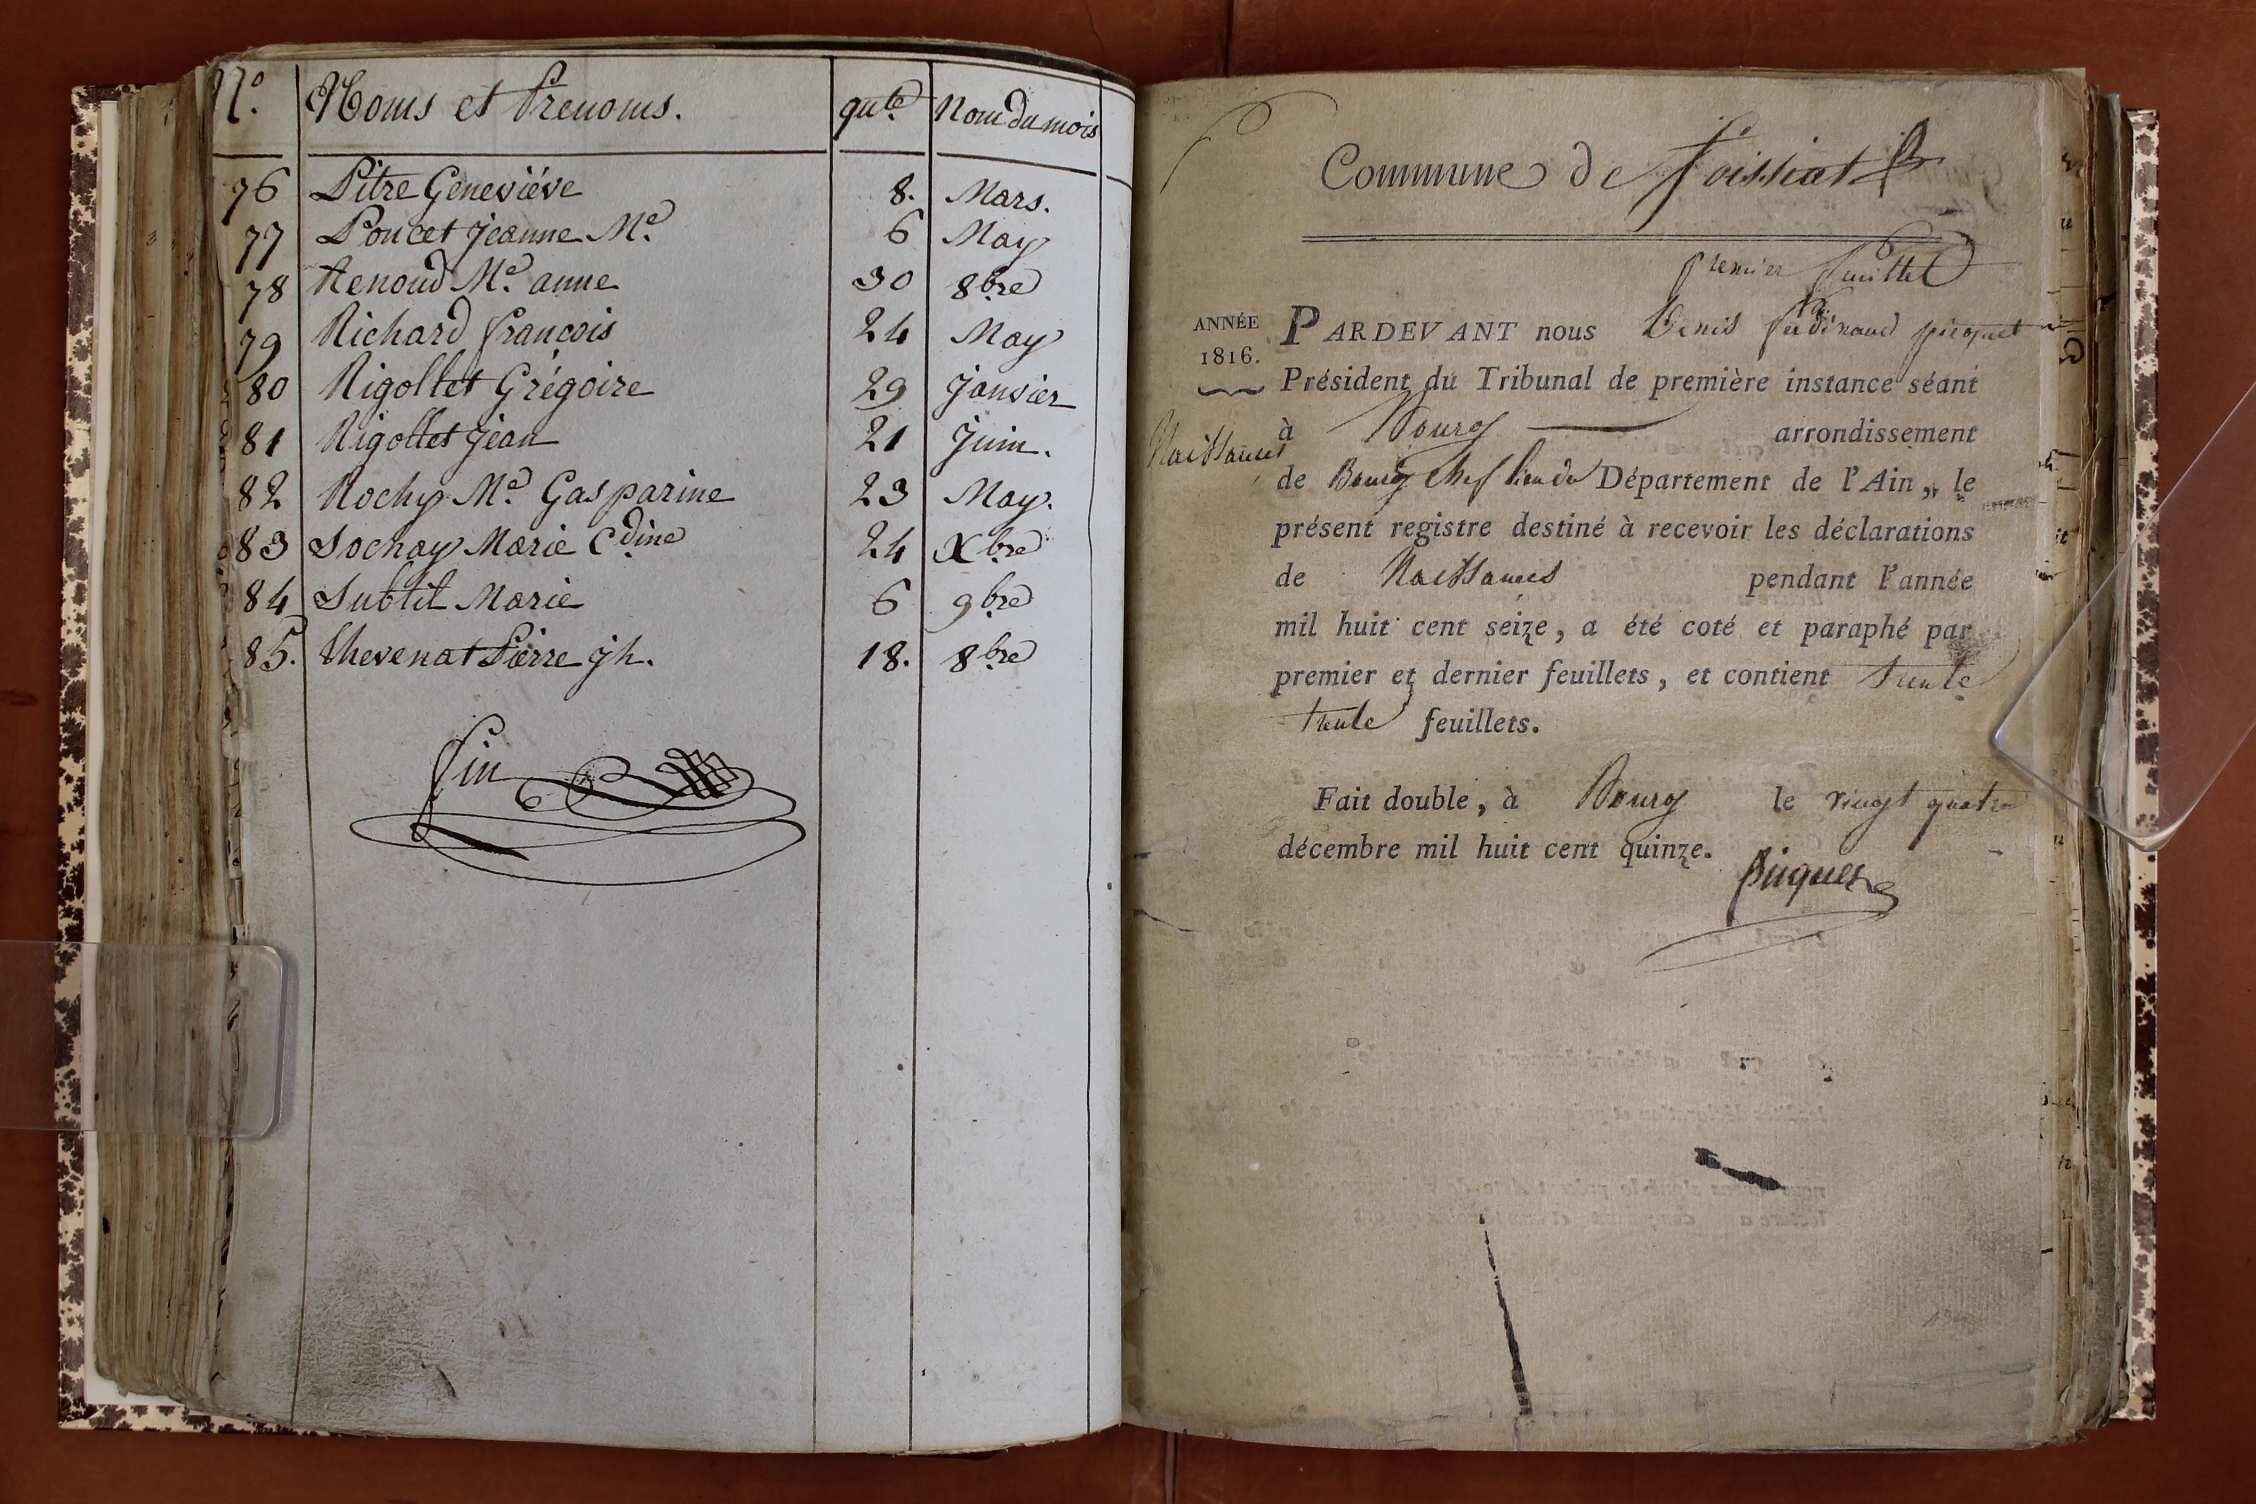 N.° Noms et Prenoms. qu.te Nom du mois
76 Pitre Geneviéve 8. Mars.
77 Poncet Jeanne M.e 6 May
78 Renoud M.e anne 30 8bre
79 Richard françois 24 May
80 Rigollet Grégoire 29 Janvier
81 Rigollet Jean 21 Juin.
82 Rochy M.e Gasparine 23 May.
83 Sochay Marie C.dine 24 Xbre
84 Subtil Marie 6 9bre
85. Thevenat Pierre jh. 18. 8bre
fin
Commune de Foissiat
premier feuillet
ANNÉE
1816.
Naissances
PARDEVANT nous Denis ferdinand picquet
Président du Tribunal de première instance séant
à Bourg arrondissement
de Bourg Chef lieu du Département de l'Ain, le
présent registre destiné à recevoir les déclarations
de Naissances pendant l'année
mil huit cent seize, a été coté et paraphé par
premier et dernier feuillets, et contient trente
trente feuillets.
Fait double, à Bourg le vingt quatre
décembre mil huit cent quinze.
Picquet